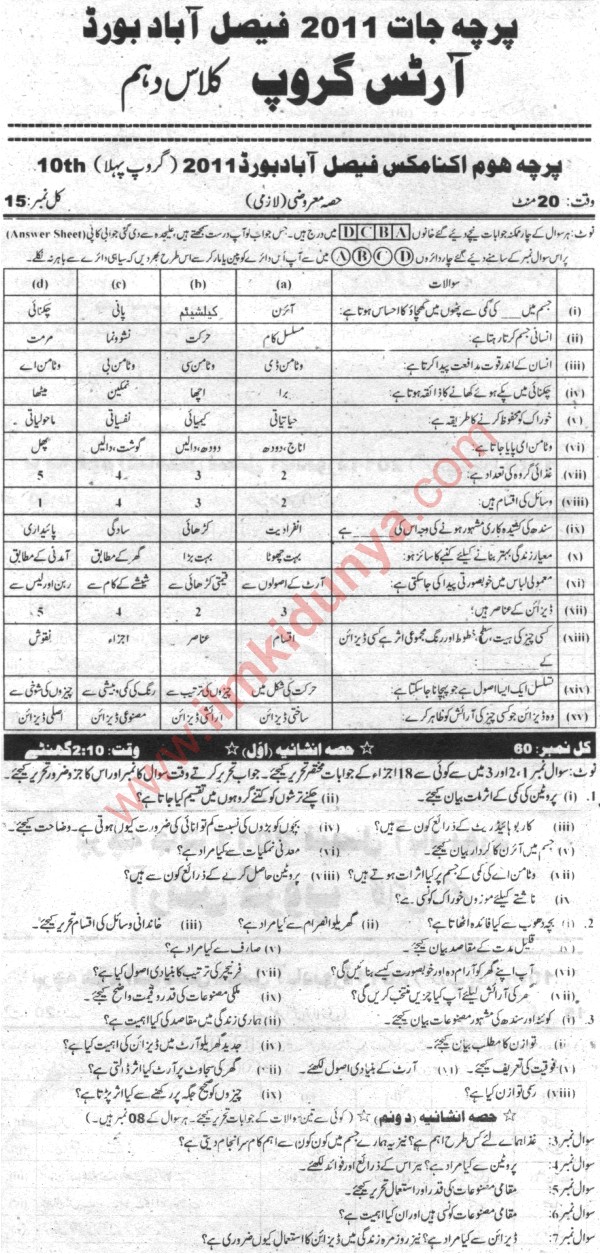 پرچہ جات 2011 فیصل آباد بورڈ
آرٹس گروپ کلاس دہم
پرچہ ھوم اکنامکس فیصل آباد بورڈ 2011 (گروپ پہلا) 10th
وقت: 20 منٹ حصہ معروضی (لازمی) کل نمبر: 15
نوٹ: ہر سوال کے چار ممکنہ جوابات نیچے دیئے گئے خانوں A B C D میں درج ہیں۔ جس جواب کو آپ درست سمجھتے ہیں، علیحدہ سے دی گئی جوابی کاپی (Answer Sheet)
پر اس سوال نمبر کے سامنے دیئے گئے چار دائروں A B C D میں سے آپ اُس دائرے کو پین یا مارکر سے اس طرح بھر دیں کہ سیاہی دائرے سے باہر نہ نکلے۔
سوالات (a) (b) (c) (d)
(i) جسم میں ___ کی کمی سے پٹھوں میں کھچاؤ کا احساس ہوتا ہے: آئرن کیلشیئم پانی چکنائی
(ii) انسانی جسم کرتا رہتا ہے: مسلسل کام حرکت نشوونما مرمت
(iii) انسان کے اندر قوت مدافعت پیدا کرتا ہے: وٹامن ڈی وٹامن سی وٹامن بی وٹامن اے
(iv) چکنائی میں پکے ہوئے کھانے کا ذائقہ ہوتا ہے: برا اچھا نمکین میٹھا
(v) خوراک کو محفوظ کرنے کا طریقہ ہے: حیاتیاتی کیمیائی نفسیاتی ماحولیاتی
(vi) وٹامن ای پایا جاتا ہے: اناج، دودھ دودھ، دالیں گوشت، دالیں پھل
(vii) غذائی گروہ کی تعداد ہے: 2 3 4 5
(viii) وسائل کی اقسام ہیں: 2 3 4 1
(ix) سندھ کی کشیدہ کاری مشہور ہونے کی وجہ اس کی ___ ہے انفرادیت کڑھائی سادگی پائیداری
(x) معیار زندگی بہتر بنانے کیلئے کنبے کا سائز ہو: بہت چھوٹا بہت بڑا گھر کے مطابق آمدنی کے مطابق
(xi) معمولی لباس میں خوبصورتی پیدا کی جا سکتی ہے: آرٹ کے اصولوں سے قیمتی کڑھائی سے شیشے کے کام سے ربن اور لیس سے
(xii) ڈیزائن کے عناصر ہیں: 3 2 4 5
(xiii) کسی چیز کی ہیت، سطح، خطوط اور رنگ مجموعی اثر ہے کسی ڈیزائن کے ___: اقسام عناصر اجزاء نقوش
(xiv) تسلسل ایک ایسا اصول ہے جو پہچانا جا سکتا ہے: حرکت کی شکل میں چیزوں کی ترتیب سے رنگ کی کمی و بیشی سے چیزوں کی شوخی سے
(xv) وہ ڈیزائن جو کسی چیز کی آرائش کو ظاہر کرے: ساختی ڈیزائن آرائشی ڈیزائن مصنوعی ڈیزائن اصلی ڈیزائن
کل نمبر: 60 حصہ انشائیہ (اوّل) وقت: 2:10 گھنٹے
نوٹ: سوال نمبر 1، 2 اور 3 میں سے کوئی سے 18 اجزاء کے جوابات مختصر تحریر کیجئے۔ جواب تحریر کرتے وقت سوال کا نمبر اور اس کا جزو ضرور تحریر کیجئے۔
1. (i) پروٹین کی کمی کے اثرات بیان کیجئے۔ (ii) چکنے ترشوں کو کتنے گروہوں میں تقسیم کیا جاتا ہے؟
(iii) کاربوہائیڈریٹ کے ذرائع کون سے ہیں؟ (iv) بچوں کو بڑوں کی نسبت کم توانائی کی ضرورت کیوں ہوتی ہے۔ وضاحت کیجئے۔
(v) جسم میں آئرن کا کردار بیان کیجئے۔ (vi) معدنی نمکیات سے کیا مراد ہے؟
(vii) وٹامن اے کی کمی کے جسم پر کیا اثرات ہوتے ہیں؟ (viii) پروٹین حاصل کرنے کے ذرائع کون سے ہیں؟
ix) ناشتے کیلئے موزوں خوراک کونسی ہے؟
2. (i) بچہ دھوپ سے کیا فائدہ اٹھاتا ہے؟ (ii) گھریلو انصرام سے کیا مراد ہے؟ (iii) خاندانی وسائل کی اقسام تحریر کیجئے۔
(iv) قلیل مدت کے مقاصد بیان کیجئے۔ (v) صارف سے کیا مراد ہے؟
(vi) آپ اپنے گھر کو آرام دہ اور خوبصورت کیسے بنائیں گی؟ (vii) فرنیچر کی ترتیب کا بنیادی اصول کیا ہے؟
(vii) گھر کی آرائش کیلئے آپ کیا چیزیں منتخب کریں گی؟ (ix) ملکی مصنوعات کی قدر و قیمت واضح کیجئے۔
3. (i) کوئٹہ اور سندھ کی مشہور مصنوعات بیان کیجئے۔ (ii) ہماری زندگی میں مقاصد کی کیا اہمیت ہے؟
توازن کا مطلب بیان کیجئے۔ (iv) جدید گھریلو آرٹ میں ڈیزائن کی اہمیت کیا ہے؟
(v) فوقیت کی تعریف کیجئے۔ (vi) آرٹ کے بنیادی اصول لکھئے۔ (vii) گھر کی سجاوٹ پر آرٹ کیا اثر ڈالتی ہے؟
(viii) رسمی توازن کیا ہے؟ (ix) چیزوں کو صحیح جگہ پر رکھنے سے کیا اثر پڑتا ہے؟
حصہ انشائیہ (دوئم) (کوئی سے تین سوالات کے جوابات تحریر کیجئے۔ ہر سوال کے 08 نمبر ہیں۔)
سوال نمبر 3: غذا ہمارے لئے کس طرح اہم ہے؟ نیز یہ ہمارے جسم میں کون کون سے اہم کام سرانجام دیتی ہے؟
سوال نمبر 4: پروٹین سے کیا مراد ہے؟ نیز اس کے ذرائع اور فوائد لکھئے۔
سوال نمبر 5: مقامی مصنوعات کی قدر اور استعمال تحریر کیجئے۔
سوال نمبر 6: مقامی مصنوعات کونسی ہیں اور ان کی کیا اہمیت ہے؟
سوال نمبر 7: ڈیزائن سے کیا مراد ہے؟ نیز روزمرہ زندگی میں ڈیزائن کا استعمال کیوں ضروری ہے؟
www.ilmkidunya.com